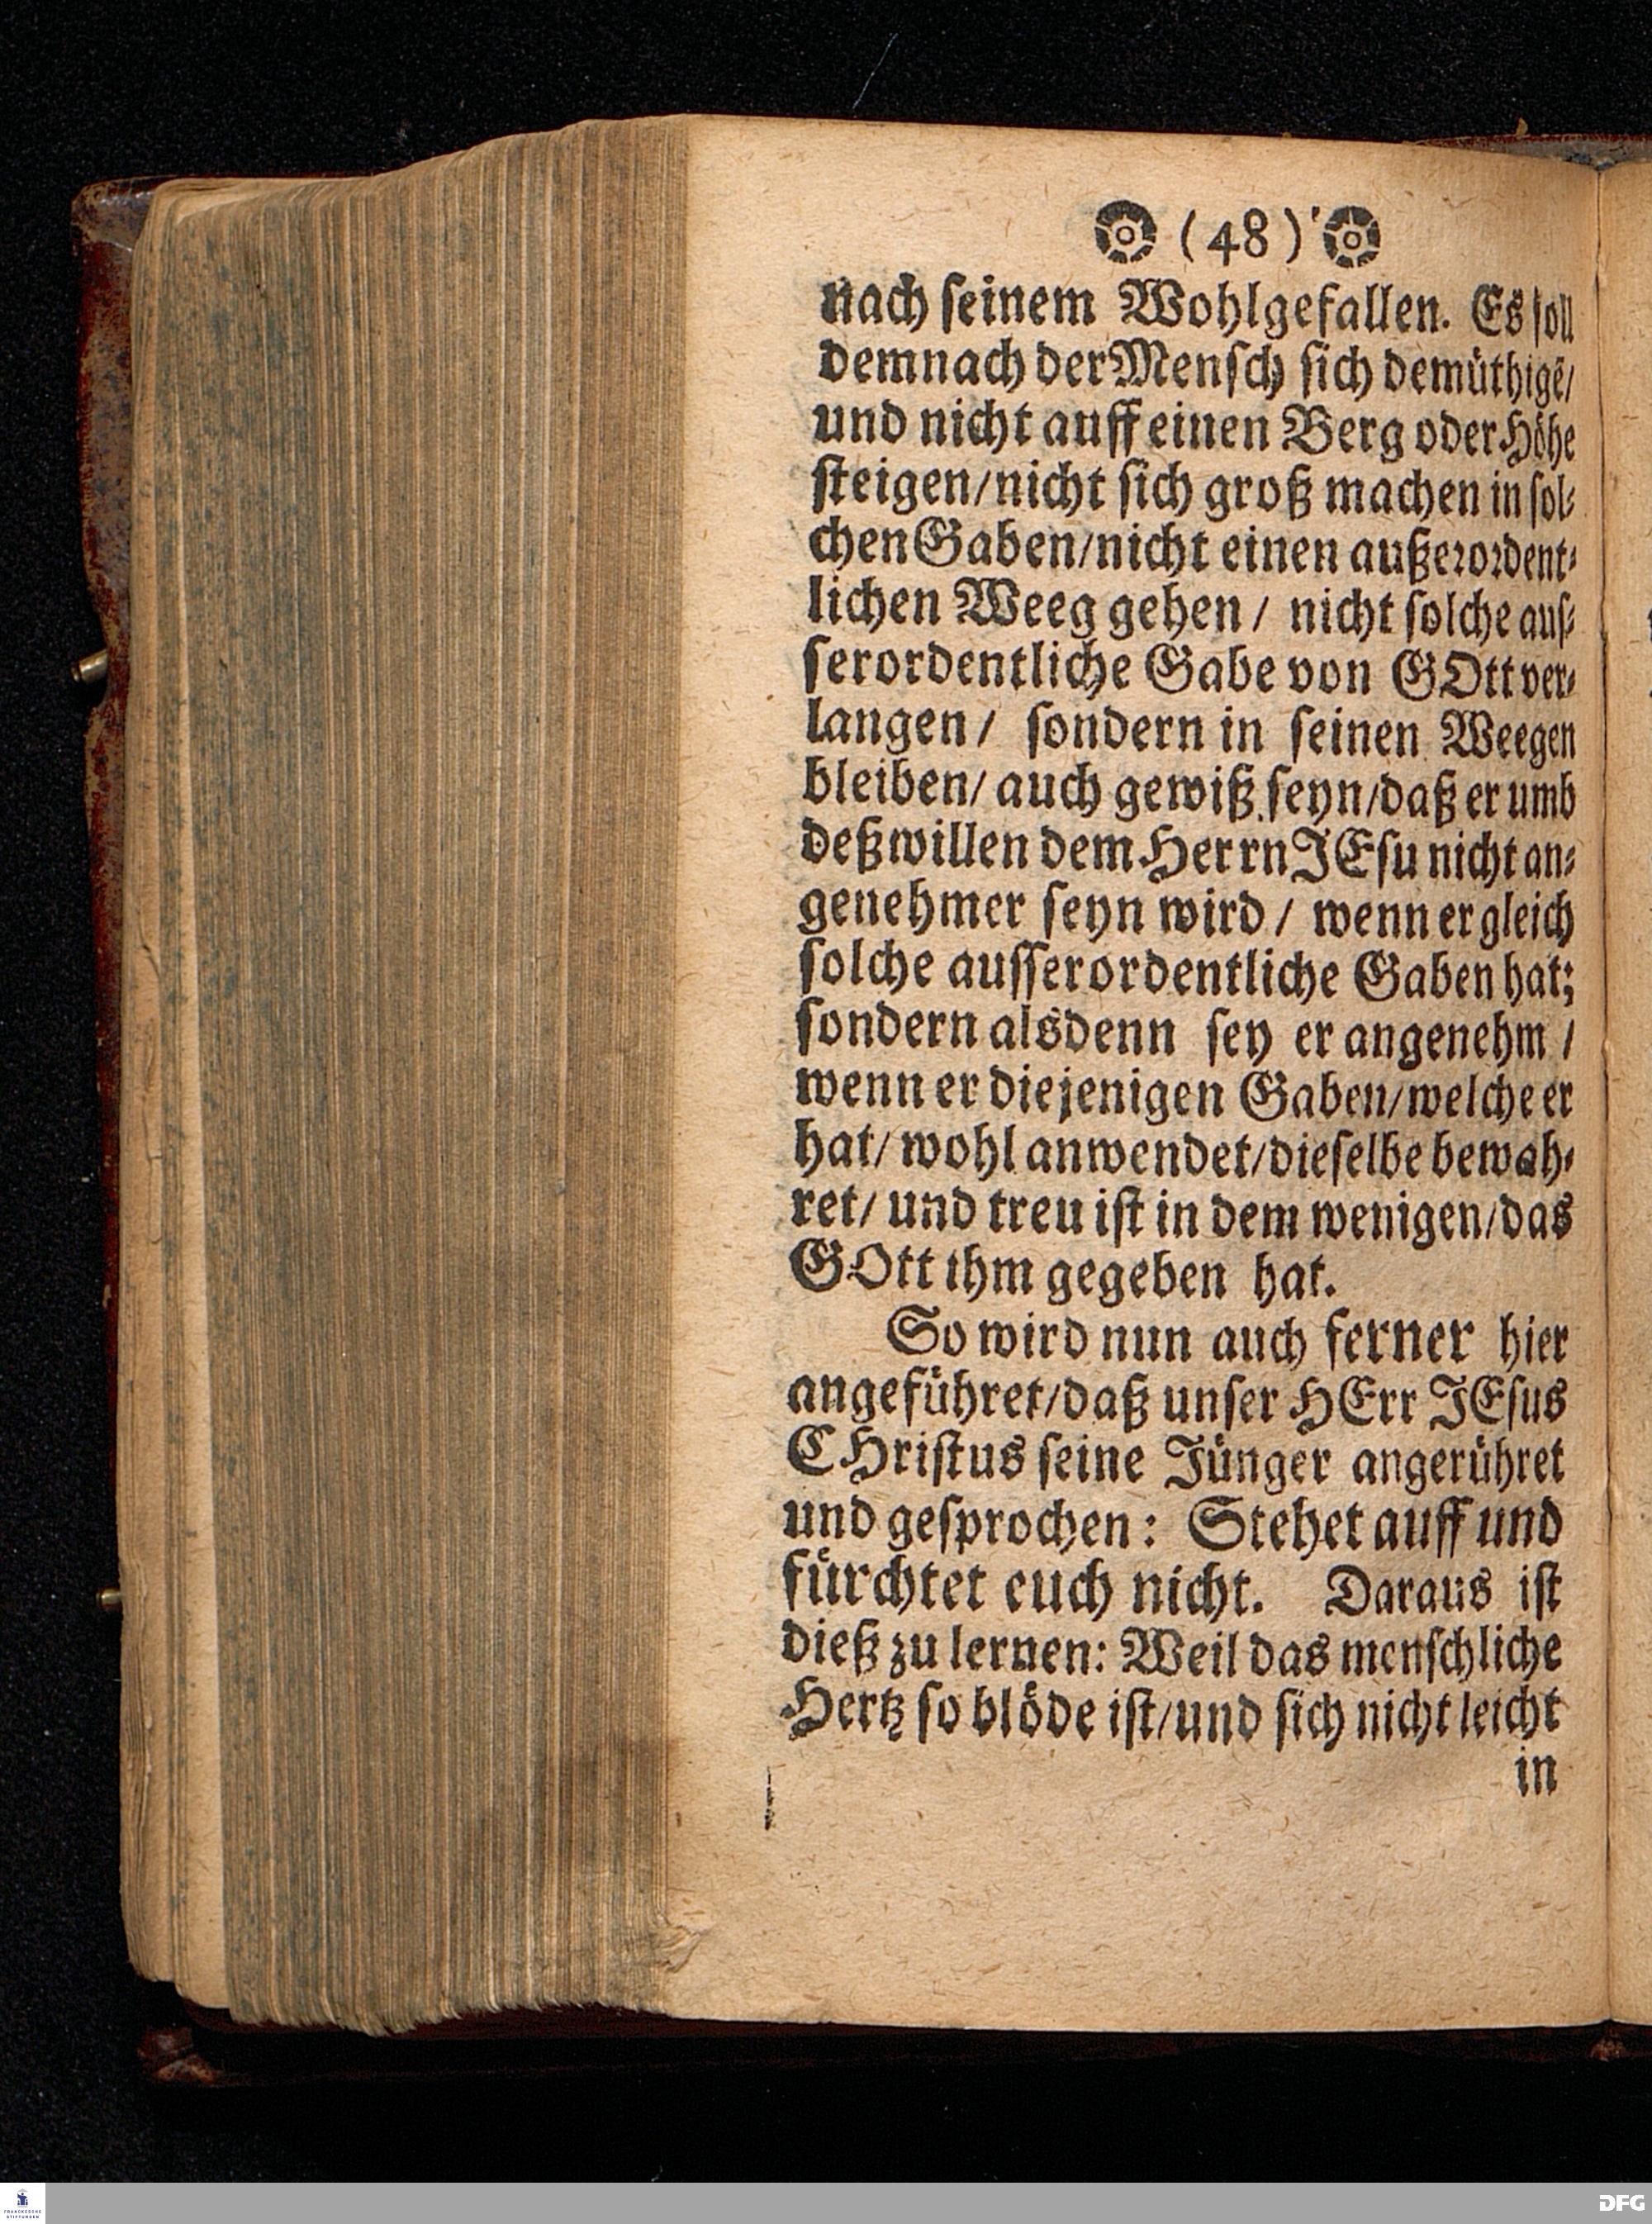 (48)
nach ſeinem Wohlgefallen. Es ſoll
demnach der Menſch ſich demüthigē/
und nicht auff einen Berg oder Höhe
ſteigen/nicht ſich groß machen in ſol-
chen Gaben/nicht einen außerordent-
lichen Weeg gehen / nicht ſolche auſ-
ſerordentliche Gabe von GOtt ver-
langen / ſondern in ſeinen Weegen
bleiben/ auch gewiß ſeyn/daß er umb
deßwillen dem Herrn JEſu nicht an-
genehmer ſeyn wird / wenn er gleich
ſolche auſſerordentliche Gaben hat;
ſondern alsdenn ſey er angenehm /
wenn er diejenigen Gaben/welche er
hat/ wohl anwendet/dieſelbe bewah-
ret/ und treu iſt in dem wenigen/das
GOtt ihm gegeben hat.
So wird nun auch ferner hier
angeführet/daß unſer HErr JEſus
CHriſtus ſeine Jünger angerühret
und geſprochen: Stehet auff und
fürchtet euch nicht. Daraus iſt
dieß zu lernen: Weil das menſchliche
Hertz ſo blöde iſt/und ſich nicht leicht
in
FRANCKESCHE
STIFTUNGEN
DFG